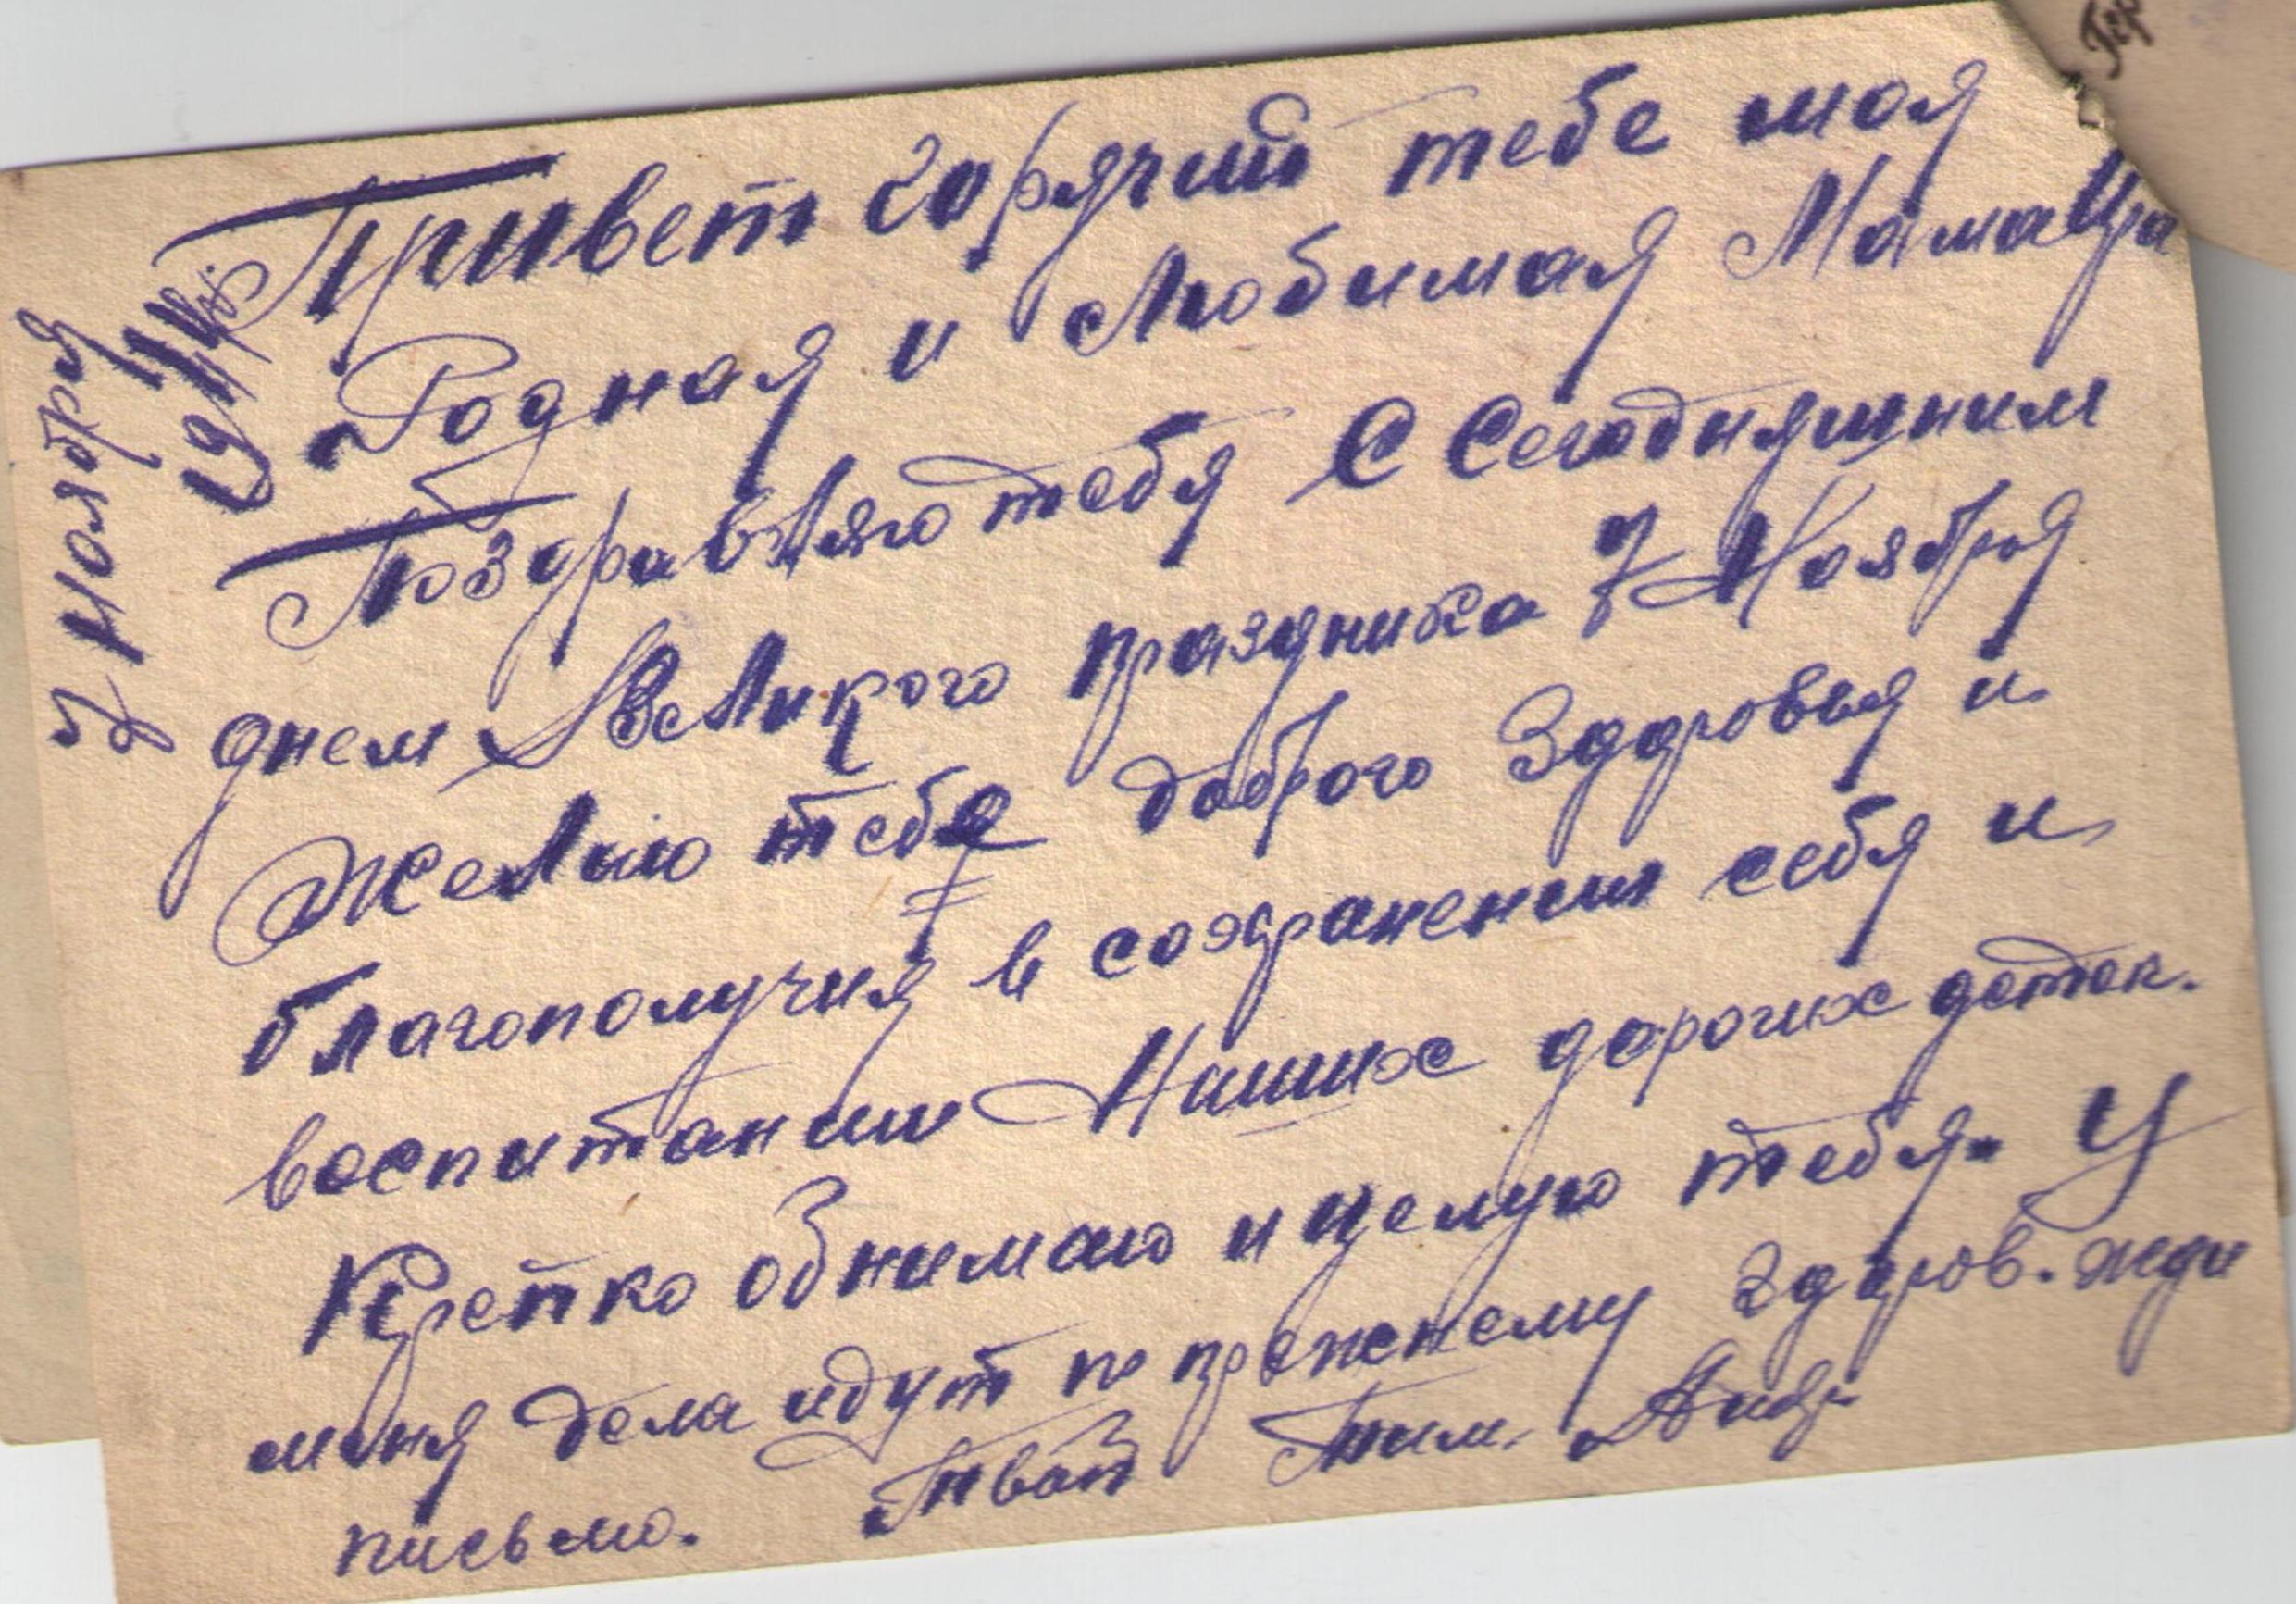 7 Ноября
1944
Привет горячий тебе моя
Родная и Любимая МамаИра
Поздравляю тебя С Сегодняшним
днем Великого праздника 7 Ноября
Желаю тебе доброго Здоровья и
благополучия в сохранении себя и
воспитании Наших дорогих деток.
Крепко обнимаю и целую тебя. У
меня дела идут по прежнему здоров. жди
письмо. Твой Тим.